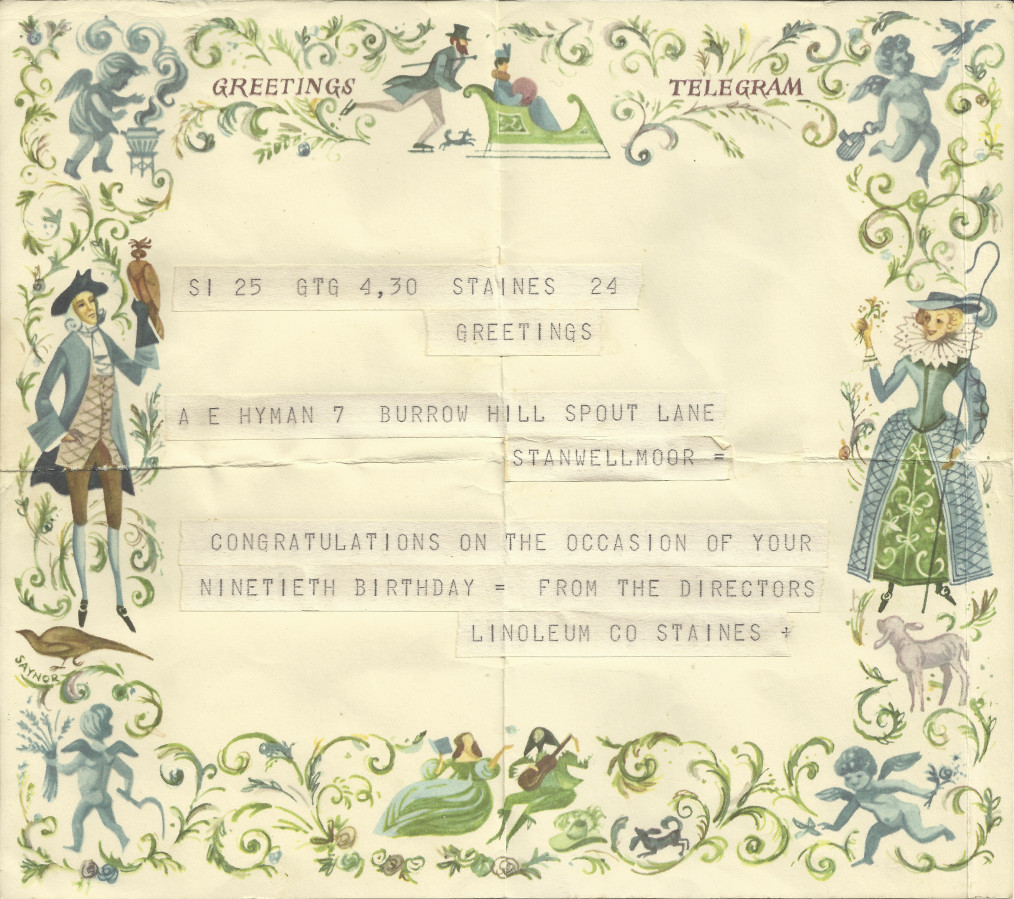 GREETINGS TELEGRAM
SI 25 GTG 4,30 STAINES 24
GREETINGS
A E HYMAN 7 BURROW HILL SPOUT LANE
STANWELLMOOR =
CONGRATULATIONS ON THE OCCASION OF YOUR
NINETIETH BIRTHDAY = FROM THE DIRECTORS
LINOLEUM CO STAINES +
SAYNOR